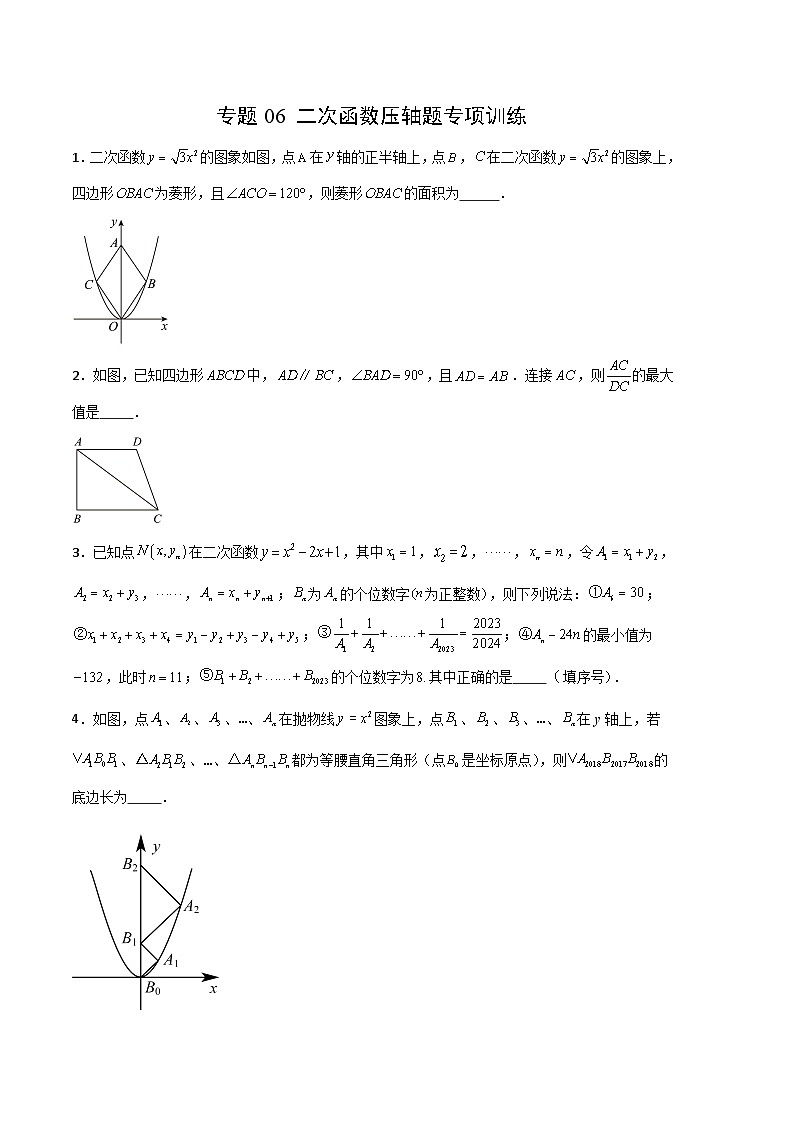 专题06 二次函数压轴题专项训练
1. 二次函数y = √3x²的图象如图，点A在y轴的正半轴上，点B，C在二次函数y = √3x²的图象上，
四边形OBAC为菱形，且∠ACO = 120°，则菱形OBAC的面积为______．
y
A
C
B
O
x
2. 如图，已知四边形ABCD中，AD∥BC，∠BAD = 90°，且AD = AB．连接AC，则AC/DC的最大
值是_____．
A D
B C
3. 已知点N(x,yₙ)在二次函数y = x² − 2x+1，其中x₁ = 1，x₂ = 2，……，xₙ = n，令A₁ = x₁ + y₂，
A₂ = x₂ + y₃，……，Aₙ = xₙ + yₙ₊₁；Bₙ为Aₙ的个位数字(n为正整数)，则下列说法：①A₅ = 30；
②x₁ + x₂ + x₃ + x₄ = y₁ − y₂ + y₃ − y₄ + y₅；③1/A₁ + 1/A₂ + …… + 1/A₂₀₂₃ = 2023/2024；④Aₙ − 24n的最小值为
−132，此时n = 11；⑤B₁ + B₂ + …… + B₂₀₂₃的个位数字为8.其中正确的是_____（填序号）．
4. 如图，点A₁、A₂、A₃、…、Aₙ在抛物线y = x²图象上，点B₁、B₂、B₃、…、Bₙ在y轴上，若
∨A₁B₀B₁、△A₂B₁B₂、…、△AₙBₙ₋₁Bₙ都为等腰直角三角形（点B₀是坐标原点），则∨A₂₀₁₈B₂₀₁₇B₂₀₁₈的
底边长为_____．
y
B₂
A₂
B₁
A₁
B₀
x